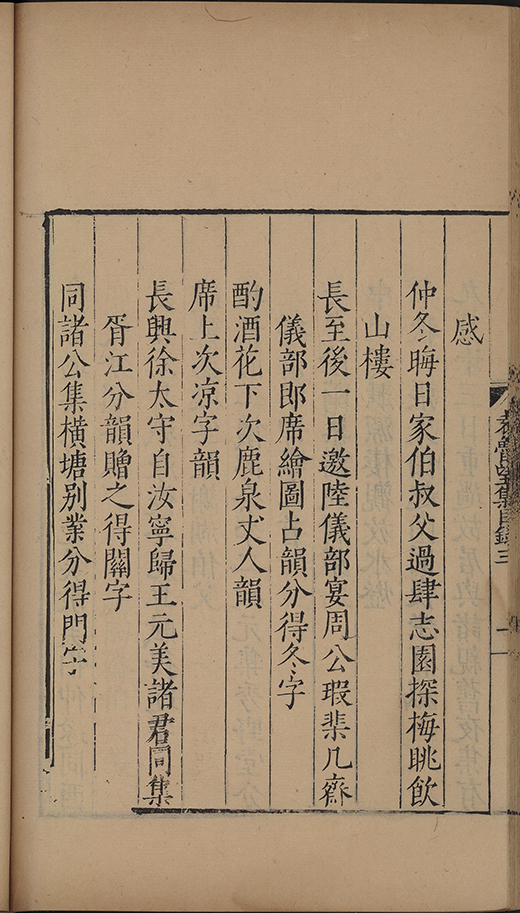 感
仲冬晦日家伯叔父過肆志園探梅眺飲
山樓
長至後一日邀陸儀部宴周公瑕棐几齋
儀部即席繪圖占韻分得冬字
酌酒花下次鹿泉丈人韻
席上次凉字韻
長興徐太守自汝寧歸王元美諸君同集
胥江分韻贈之得關字
同諸公集橫塘别業分得門字
集目錄三